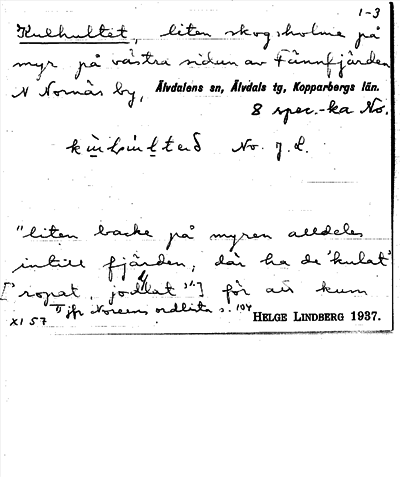 1-3
Kulhultet, liten skogsholme på
myr på västra sidan av Fännfjärden
N Nornäs by, Älvdalens sn, Älvdals tg, Kopparbergs län.
8 spec.-ka No.
No. J. L.
"liten backe på myren alldeles
intill fjärden, där ha de 'kulat'
['ropat, jodlat'¹] för att kum
¹ jfr Noreens ordlista s. 104
XI 57
HELGE LINDBERG 1937.